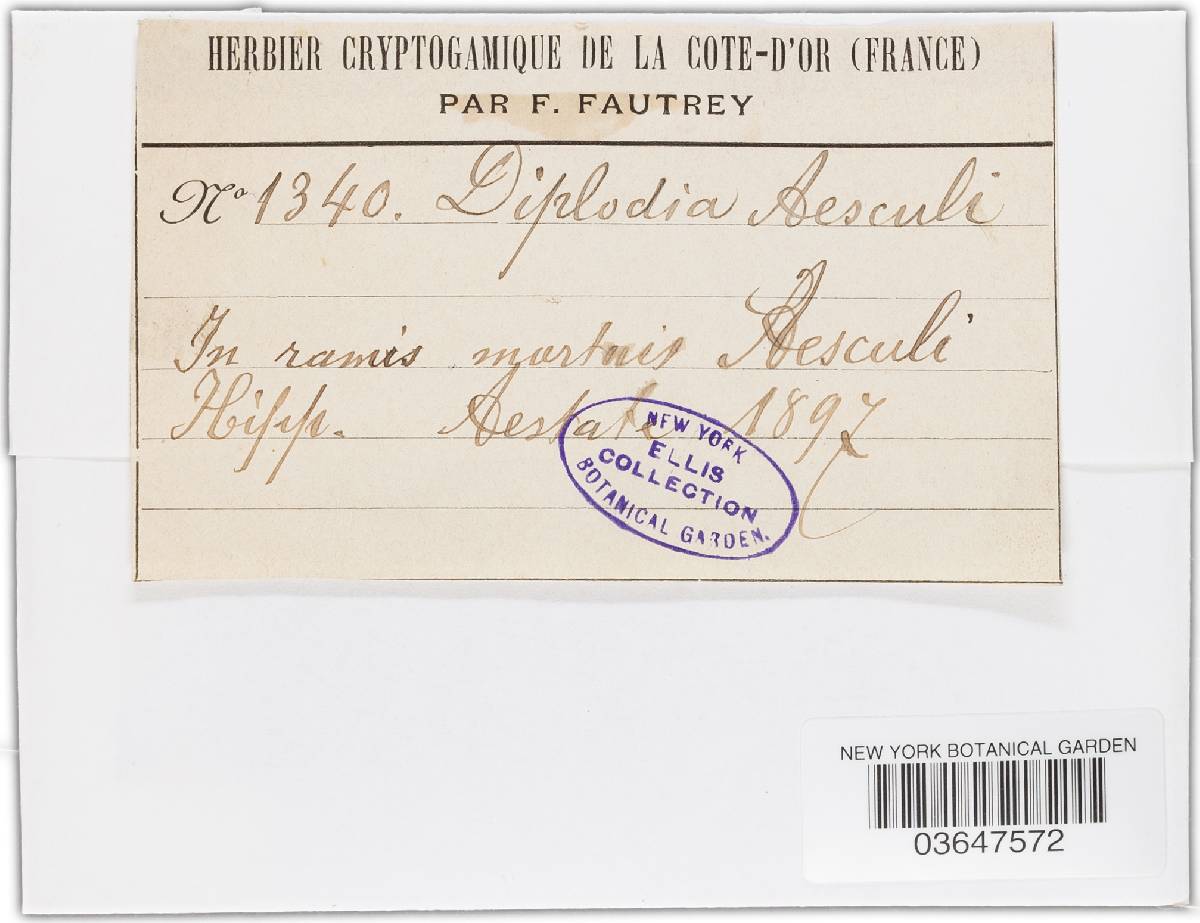 HERBIER CRYPTOGAMIQUE DE LA COTE-D'OR (FRANCE)
PAR F. FAUTREY
No 1340. Diplodia Aesculi
In ramis mortuis Aesculi
Hipp. Aestate 1897
NEW YORK
ELLIS
COLLECTION
BOTANICAL GARDEN.
NEW YORK BOTANICAL GARDEN
03647572